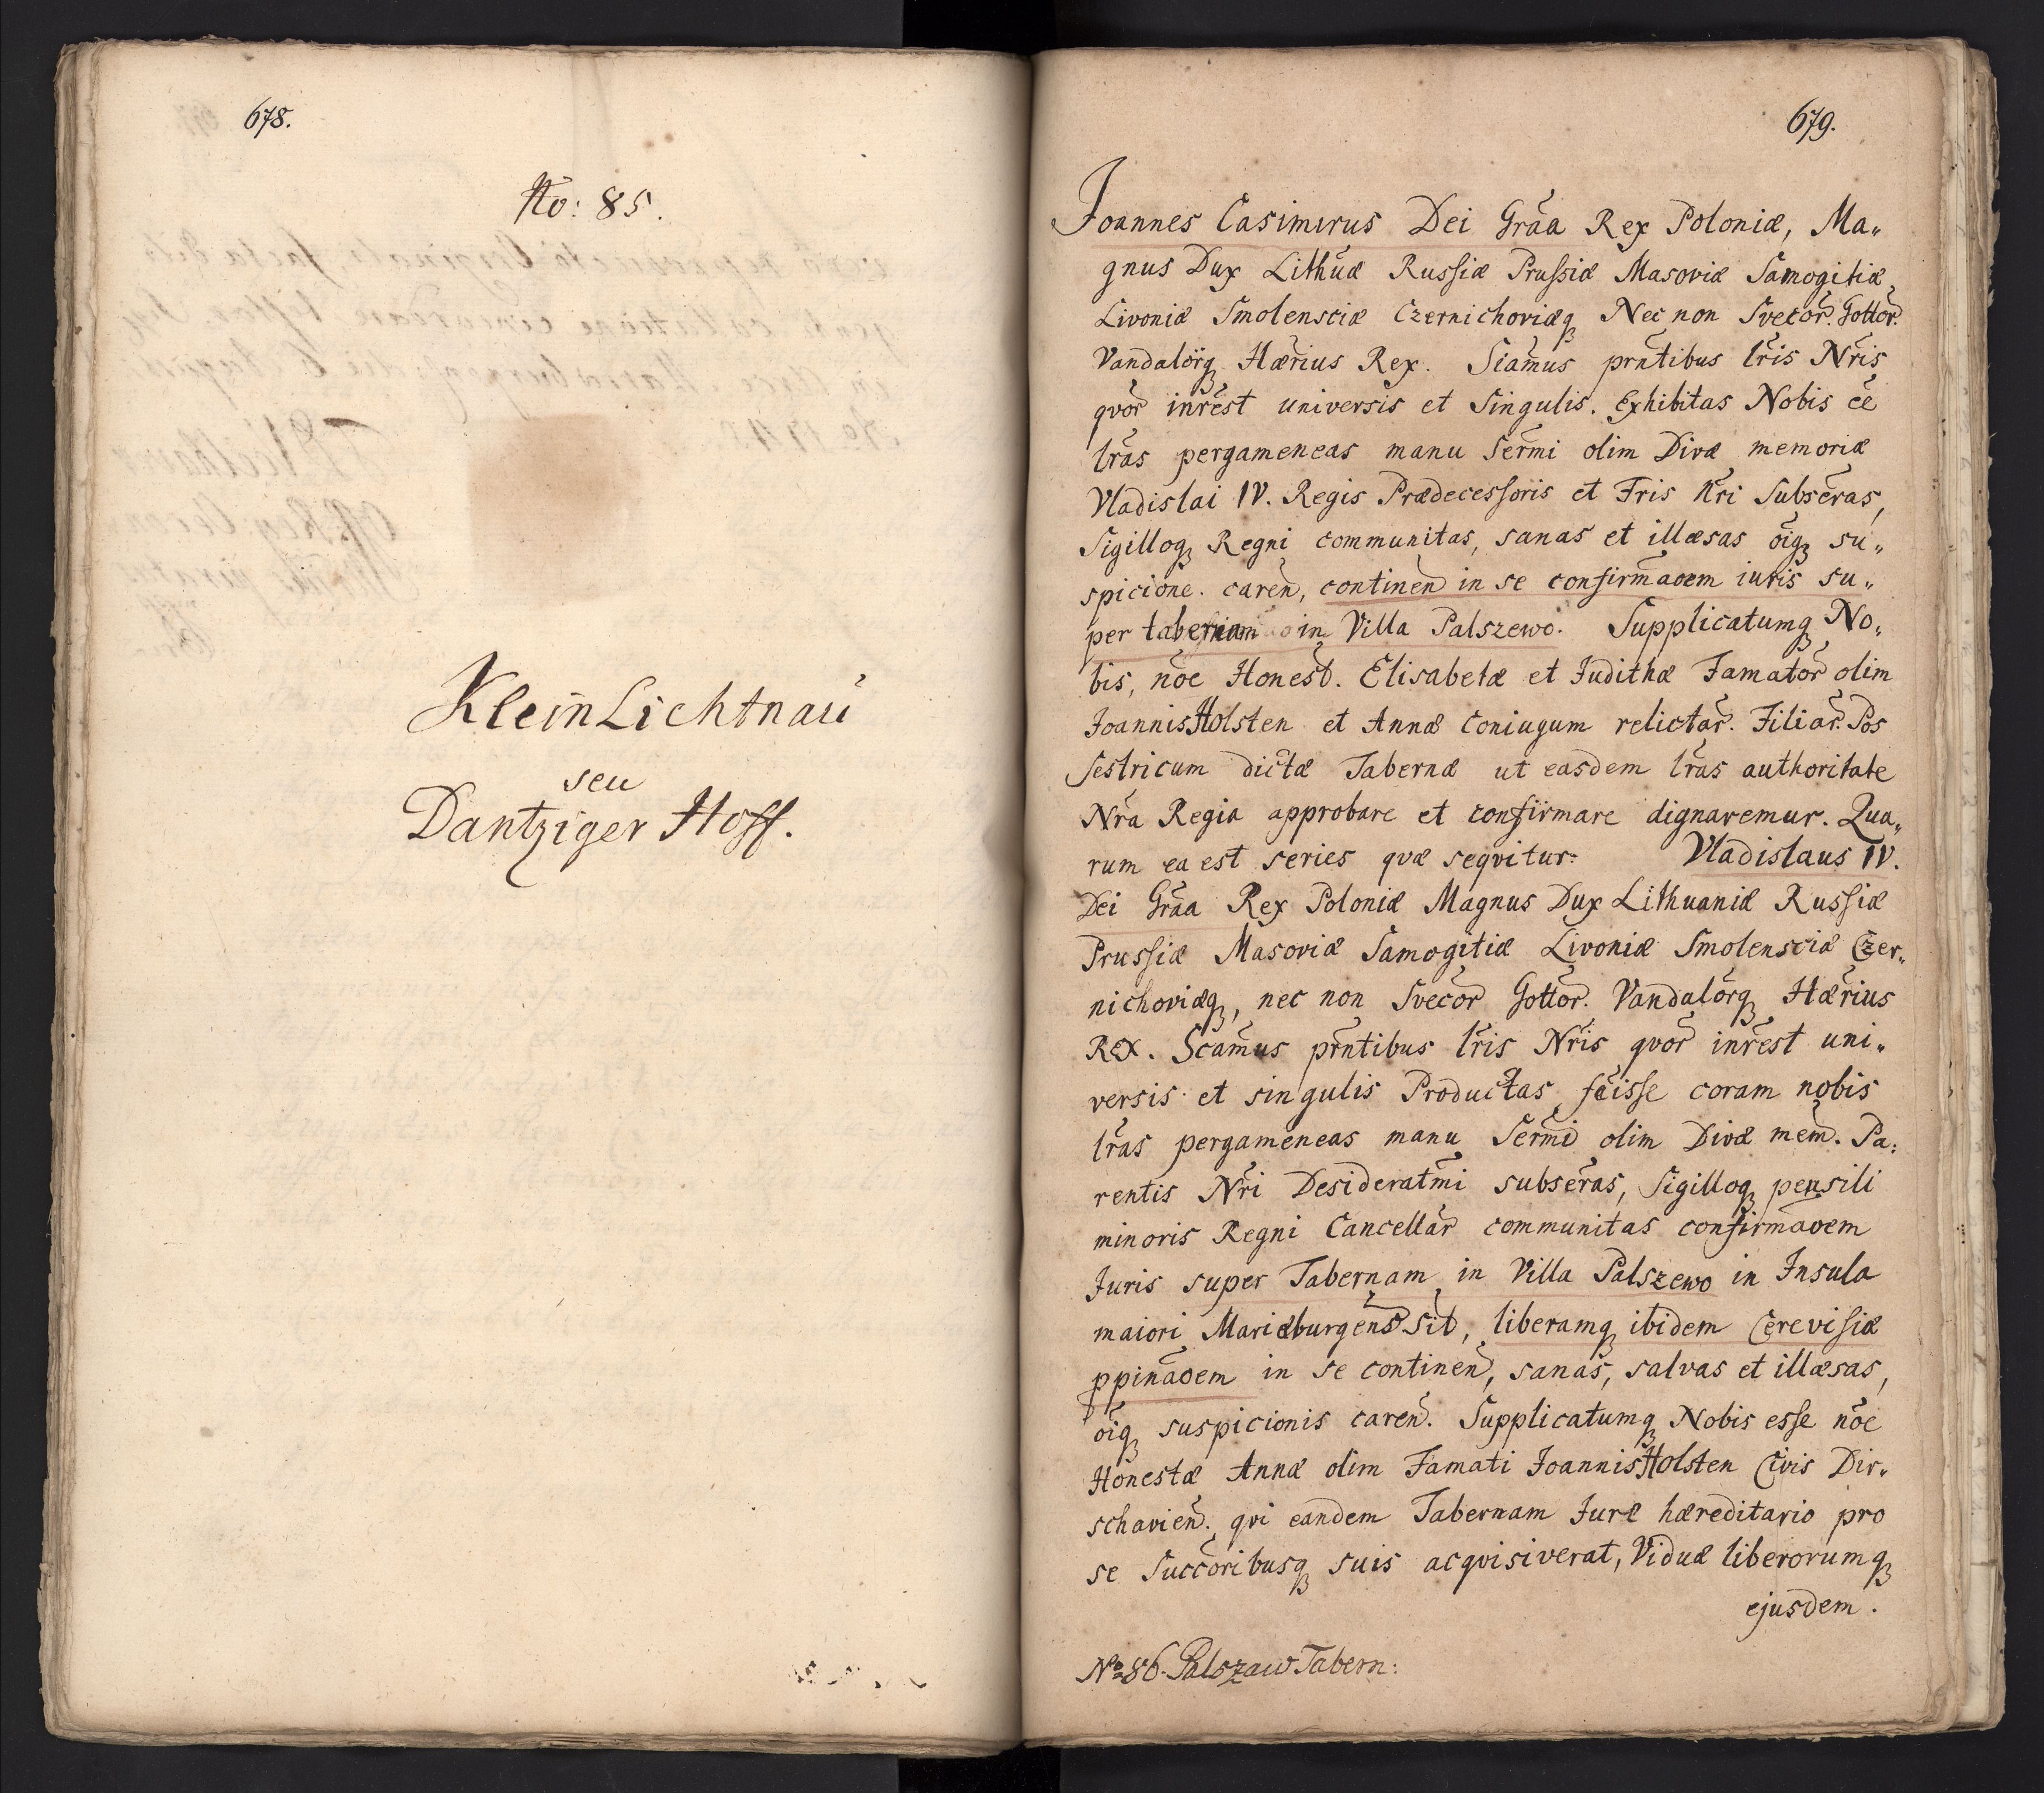 678.
No: 85.
Klein Lichtnau
seu
Dantziger Hoff.
679.
Joannes Casimirus Dei Graa Rex Poloniæ, Ma„
gnus Dux Lithuæ Russiæ Prussiæ Masoviæ Samogitiæ,
Livoniæ Smolensciæ Czernichoviæq Nec non Svecor. Gottor.
Vandalorq Hærius Rex. Siamus prntibus lris Nris
qvor inrest universis et Singulis. Exhibitas Nobis ee
lras pergameneas manu Sermi olim Divæ memoriæ
Vladislai IV. Regis Prædecessoris et Fris Nri Subseras,
Sigilloq Regni communitas, sanas et illæsas oiq su„
spicione. caren, continen in se confirmaoem iuris su„
per tabernam in Villa Palszewo. Supplicatumq No„
bis, noe Honest. Elisabetæ et Judithæ Famator olim
Joannis Holsten et Annæ Coniugum relictar. Filiar. Pos
sestricum dictæ Tabernæ ut easdem lras authoritate
Nra Regia approbare et confirmare dignaremur. Qua„
rum ea est series qvæ seqvitur: Vladislaus IV.
Dei Graa Rex Poloniæ Magnus Dux Lithuaniæ Russiæ
Prussiæ Masoviæ Samogitiæ Livoniæ Smolensciæ Czer„
nichoviæq, nec non Svecor Gottor. Vandalorq Hærius
Rex. Scamus prntibus lris Nris qvor inrest uni„
versis et singulis Productas feisse coram nobis
lras pergameneas manu Sermi olim Divæ mem. Pa:
rentis Nri Desideratmi subseras, Sigilloq pensili
minoris Regni Cancellar communitas confirmaoem
Juris super Tabernam in Villa Palszewo in Insula
maiori Mariæburgens Sit, liberamq ibidem Cerevisiæ
ppinaoem in se continen, sanas, salvas et illæsas,
oiq suspicionis caren. Supplicatumq Nobis esse noe
Honestæ Annæ olim Famati Joannis Holsten Civis Dir„
schavien. qvi eandem Tabernam Jure hæreditario pro
se Succoribusq suis acqvisiverat, Viduæ liberorumq
ejusdem.
No 86. Palszaw Tabern: